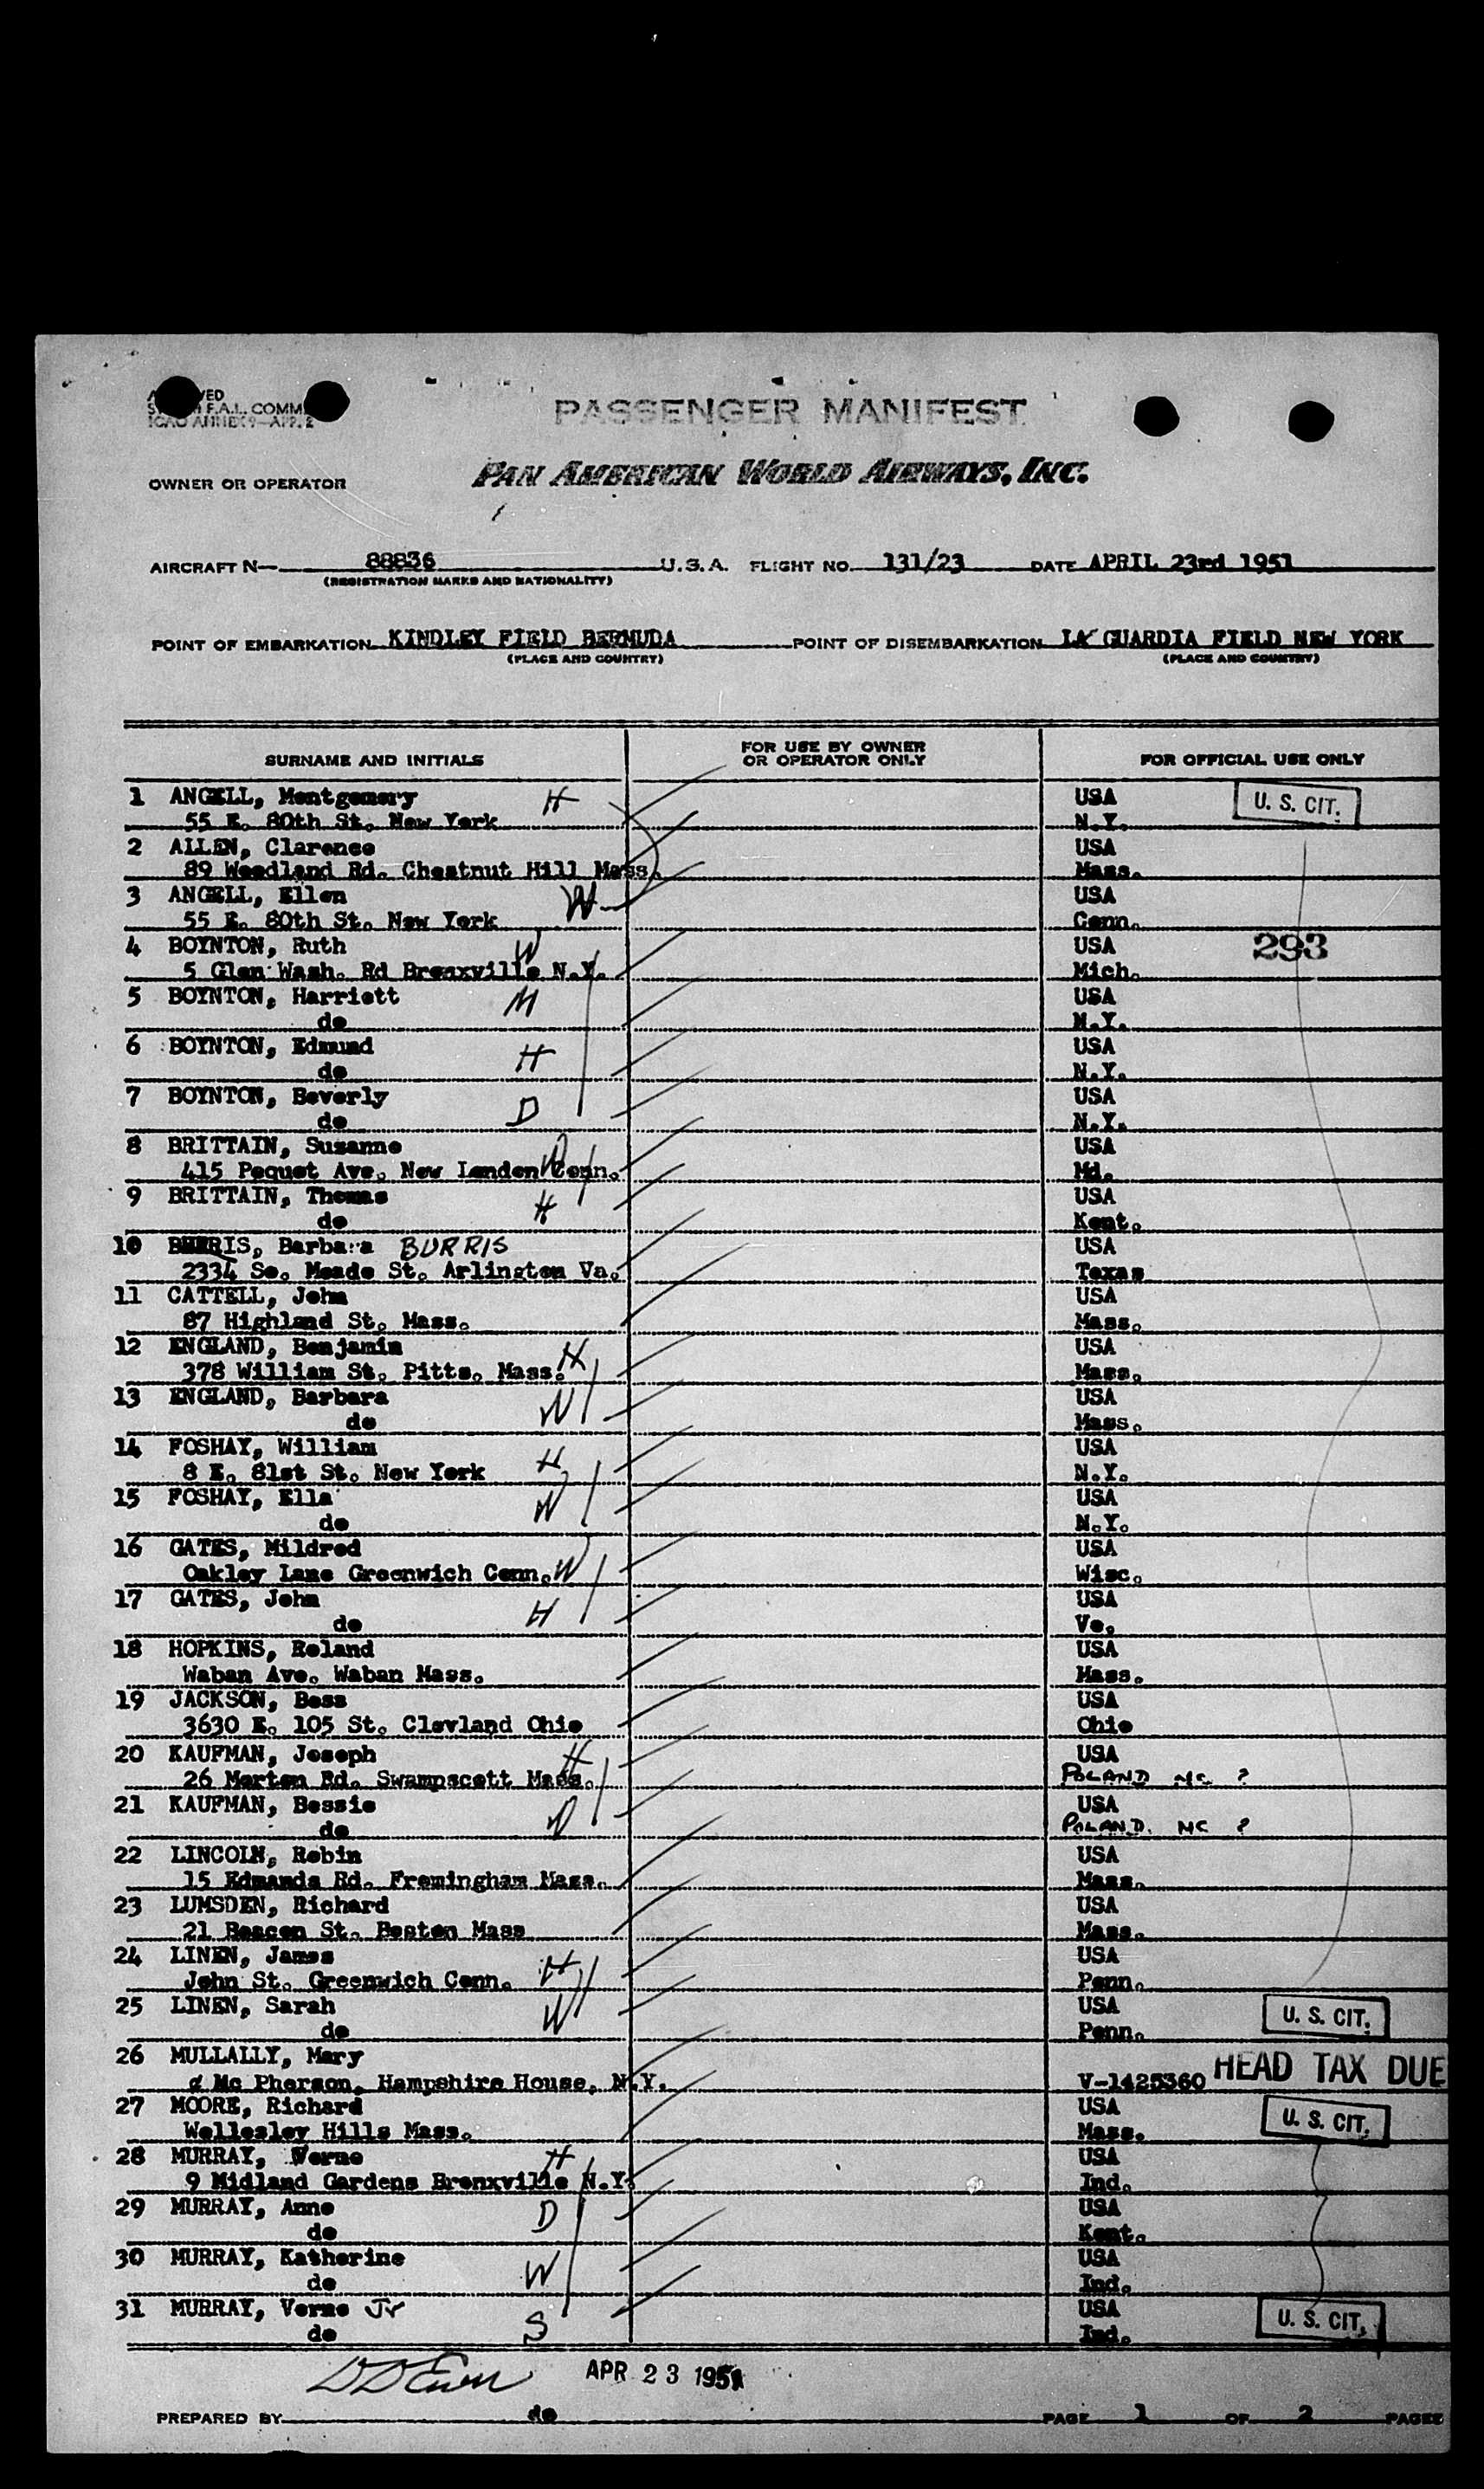 PASSENGER MANIFEST
F.A.L. COMM
ICAO ANNEX 9—APP. 2
OWNER OR OPERATOR PAN AMERICAN WORLD AIRWAYS, INC.
AIRCRAFT N— 88836 U.S.A. FLIGHT NO. 131/23 DATE APRIL 23rd 1951
(REGISTRATION MARKS AND NATIONALITY)
POINT OF EMBARKATION KINDLEY FIELD BERMUDA POINT OF DISEMBARKATION LA GUARDIA FIELD NEW YORK
(PLACE AND COUNTRY) (PLACE AND COUNTRY)
SURNAME AND INITIALS FOR USE BY OWNER OR OPERATOR ONLY FOR OFFICIAL USE ONLY
1 ANGELL, Montgomery H USA U. S. CIT.
55 E. 80th St. New York N.Y.
2 ALLEN, Clarence USA
89 Woodland Rd. Chestnut Hill Mass. Mass.
3 ANGELL, Ellen W USA
55 E. 80th St. New York Conn.
4 BOYNTON, Ruth W USA 293
5 Glen Wash. Rd Bronxville N.Y. Mich.
5 BOYNTON, Harriett M USA
do N.Y.
6 BOYNTON, Edmund H USA
do N.Y.
7 BOYNTON, Beverly D USA
do N.Y.
8 BRITTAIN, Suzanne W USA
415 Pequot Ave. New London Conn. Md.
9 BRITTAIN, Thomas H USA
do Kent.
10 BHRRIS, Barbara BURRIS USA
2334 So. Meade St. Arlington Va. Texas
11 CATTELL, John USA
87 Highland St. Mass. Mass.
12 ENGLAND, Benjamin H USA
378 William St. Pitts. Mass. Mass.
13 ENGLAND, Barbara W USA
do Mass.
14 FOSHAY, William H USA
8 E. 81st St. New York N.Y.
15 FOSHAY, Ella W USA
do N.Y.
16 GATES, Mildred USA
Oakley Lane Greenwich Conn. W Wisc.
17 GATES, John H USA
do Ve.
18 HOPKINS, Roland USA
Waban Ave. Waban Mass. Mass.
19 JACKSON, Bess USA
3630 E. 105 St. Clevland Ohio Ohio
20 KAUFMAN, Joseph H USA
26 Morton Rd. Swampscott Mass. POLAND NC ?
21 KAUFMAN, Bessie W USA
do POLAND. NC ?
22 LINCOLN, Robin USA
15 Edmands Rd. Fremingham Mass. Mass.
23 LUMSDEN, Richard USA
21 Beacon St. Boston Mass Mass.
24 LINEN, James H USA
John St. Greenwich Conn. Penn.
25 LINEN, Sarah W USA U. S. CIT.
do Penn.
26 MULLALLY, Mary HEAD TAX DUE
Mc Pherson, Hampshire House, N.Y. V-1425360
27 MOORE, Richard USA U. S. CIT.
Wellesley Hills Mass. Mass.
28 MURRAY, Verne H USA
9 Midland Gardens Bronxville N.Y. Ind.
29 MURRAY, Anne D USA
do Kent.
30 MURRAY, Katherine W USA
do Ind.
31 MURRAY, Verne Jr S USA U. S. CIT.
do Ind.
APR 23 1951
PREPARED BY do PAGE 1 OF 2 PAGES